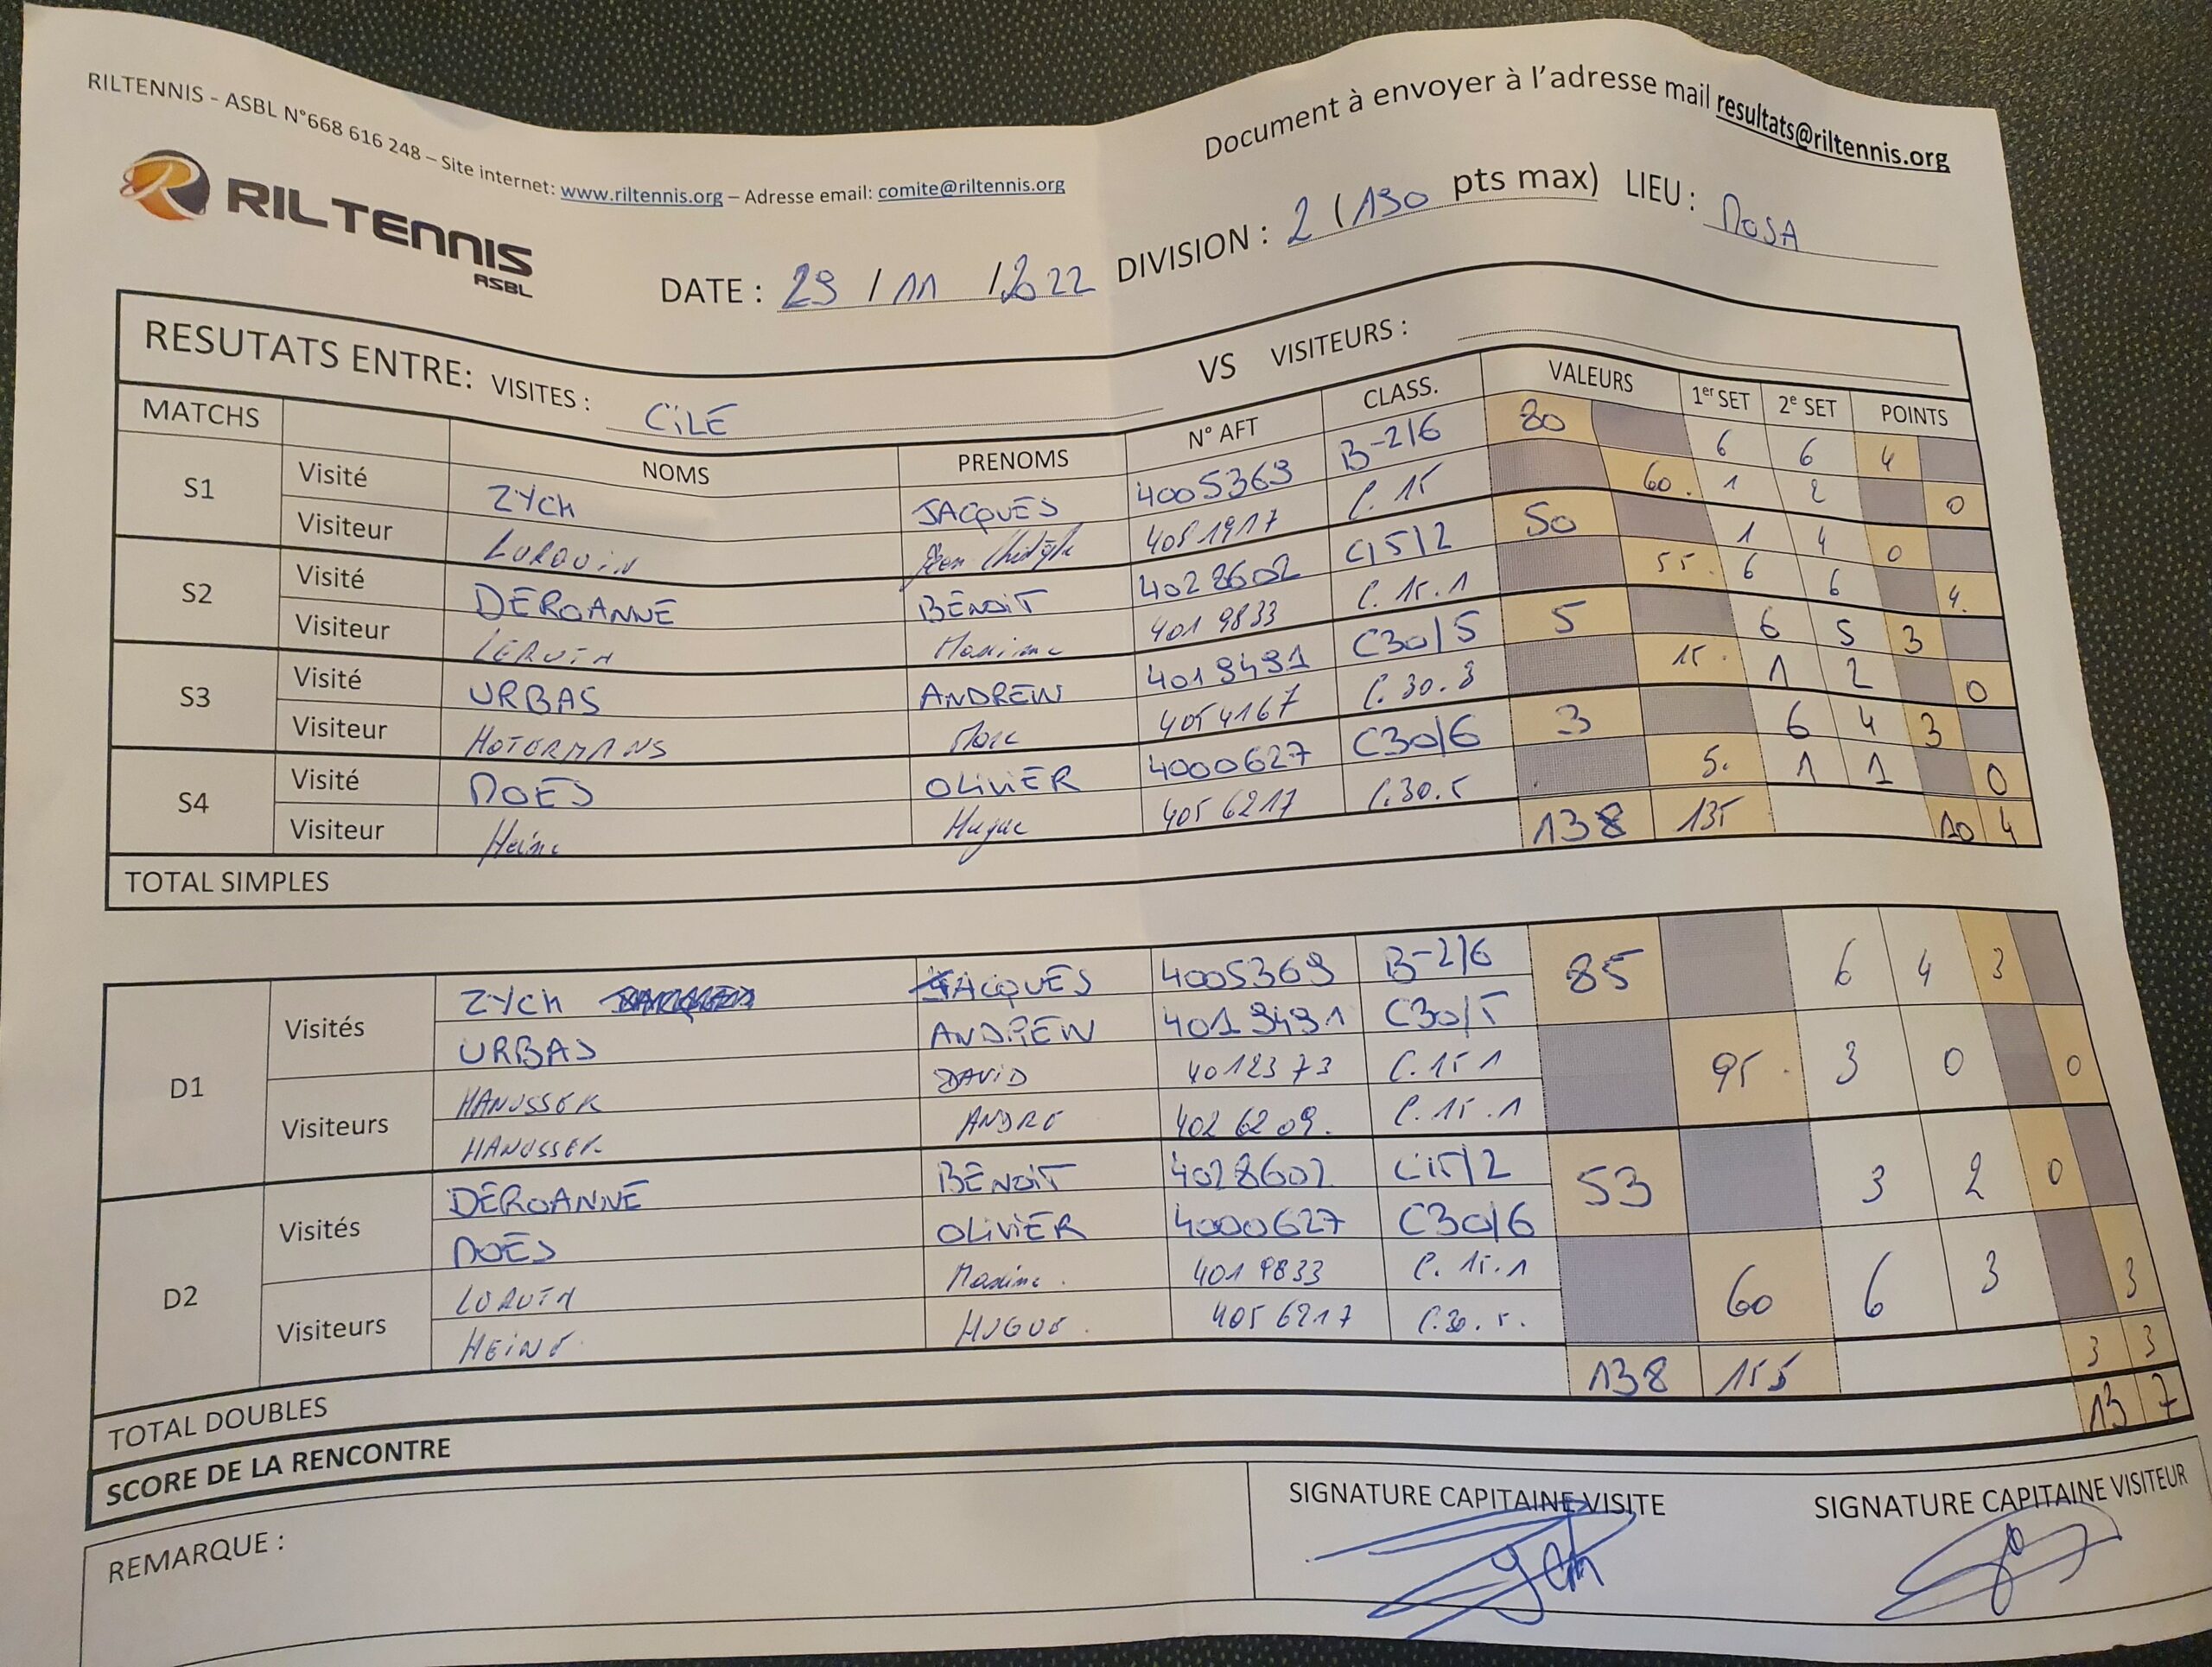 RILTENNIS - ASBL N°668 616 248 – Site internet: www.riltennis.org – Adresse email: comite@riltennis.org
Document à envoyer à l'adresse mail resultats@riltennis.org
RILTENNIS
ASBL
DATE : 29 / 11 / 2022 DIVISION : 2 (130 pts max) LIEU : MOSA
RESUTATS ENTRE: VISITES : CILE VS VISITEURS :
MATCHS NOMS PRENOMS N° AFT CLASS. VALEURS 1er SET 2e SET POINTS
S1 Visité ZYCH JACQUES 4005369 B-2/6 80 6 6 4
Visiteur LURQUIN 4081917 C.15 60. 1 2 0
S2 Visité DEROANNE BENOIT 4028602 C15/2 50 1 4 0
Visiteur Maxime 401 9833 C.15.1 55. 6 6 4.
S3 Visité URBAS ANDREW 4019491 C30/5 5 6 5 3
Visiteur HOTERMANS Marc 405 4167 C.30.3 15. 1 2 0
S4 Visité NOËS OLIVIER 4000627 C30/6 3 6 4 3
Visiteur Heine Hugue 405 6217 C.30.5 5. 1 1 0
TOTAL SIMPLES 138 135 10 4
D1 Visités ZYCH JACQUES 4005369 B-2/6 85 6 4 3
URBAS ANDREW 4019491 C30/5
Visiteurs HANUSSEK DAVID 4012373 C.15 1 95. 3 0 0
HANUSSEK ANDRE 402 6209. C.15.1
D2 Visités DEROANNE BENOIT 4028602 C15/2 53 3 2 0
NOËS OLIVIER 4000627 C30/6
Visiteurs Maxime. 401 9833 C.15.1 60 6 3 3
HEINE HUGUE. 405 6217 C.30.5.
TOTAL DOUBLES 138 155 3 3
SCORE DE LA RENCONTRE 13 7
REMARQUE :
SIGNATURE CAPITAINE VISITE
SIGNATURE CAPITAINE VISITEUR